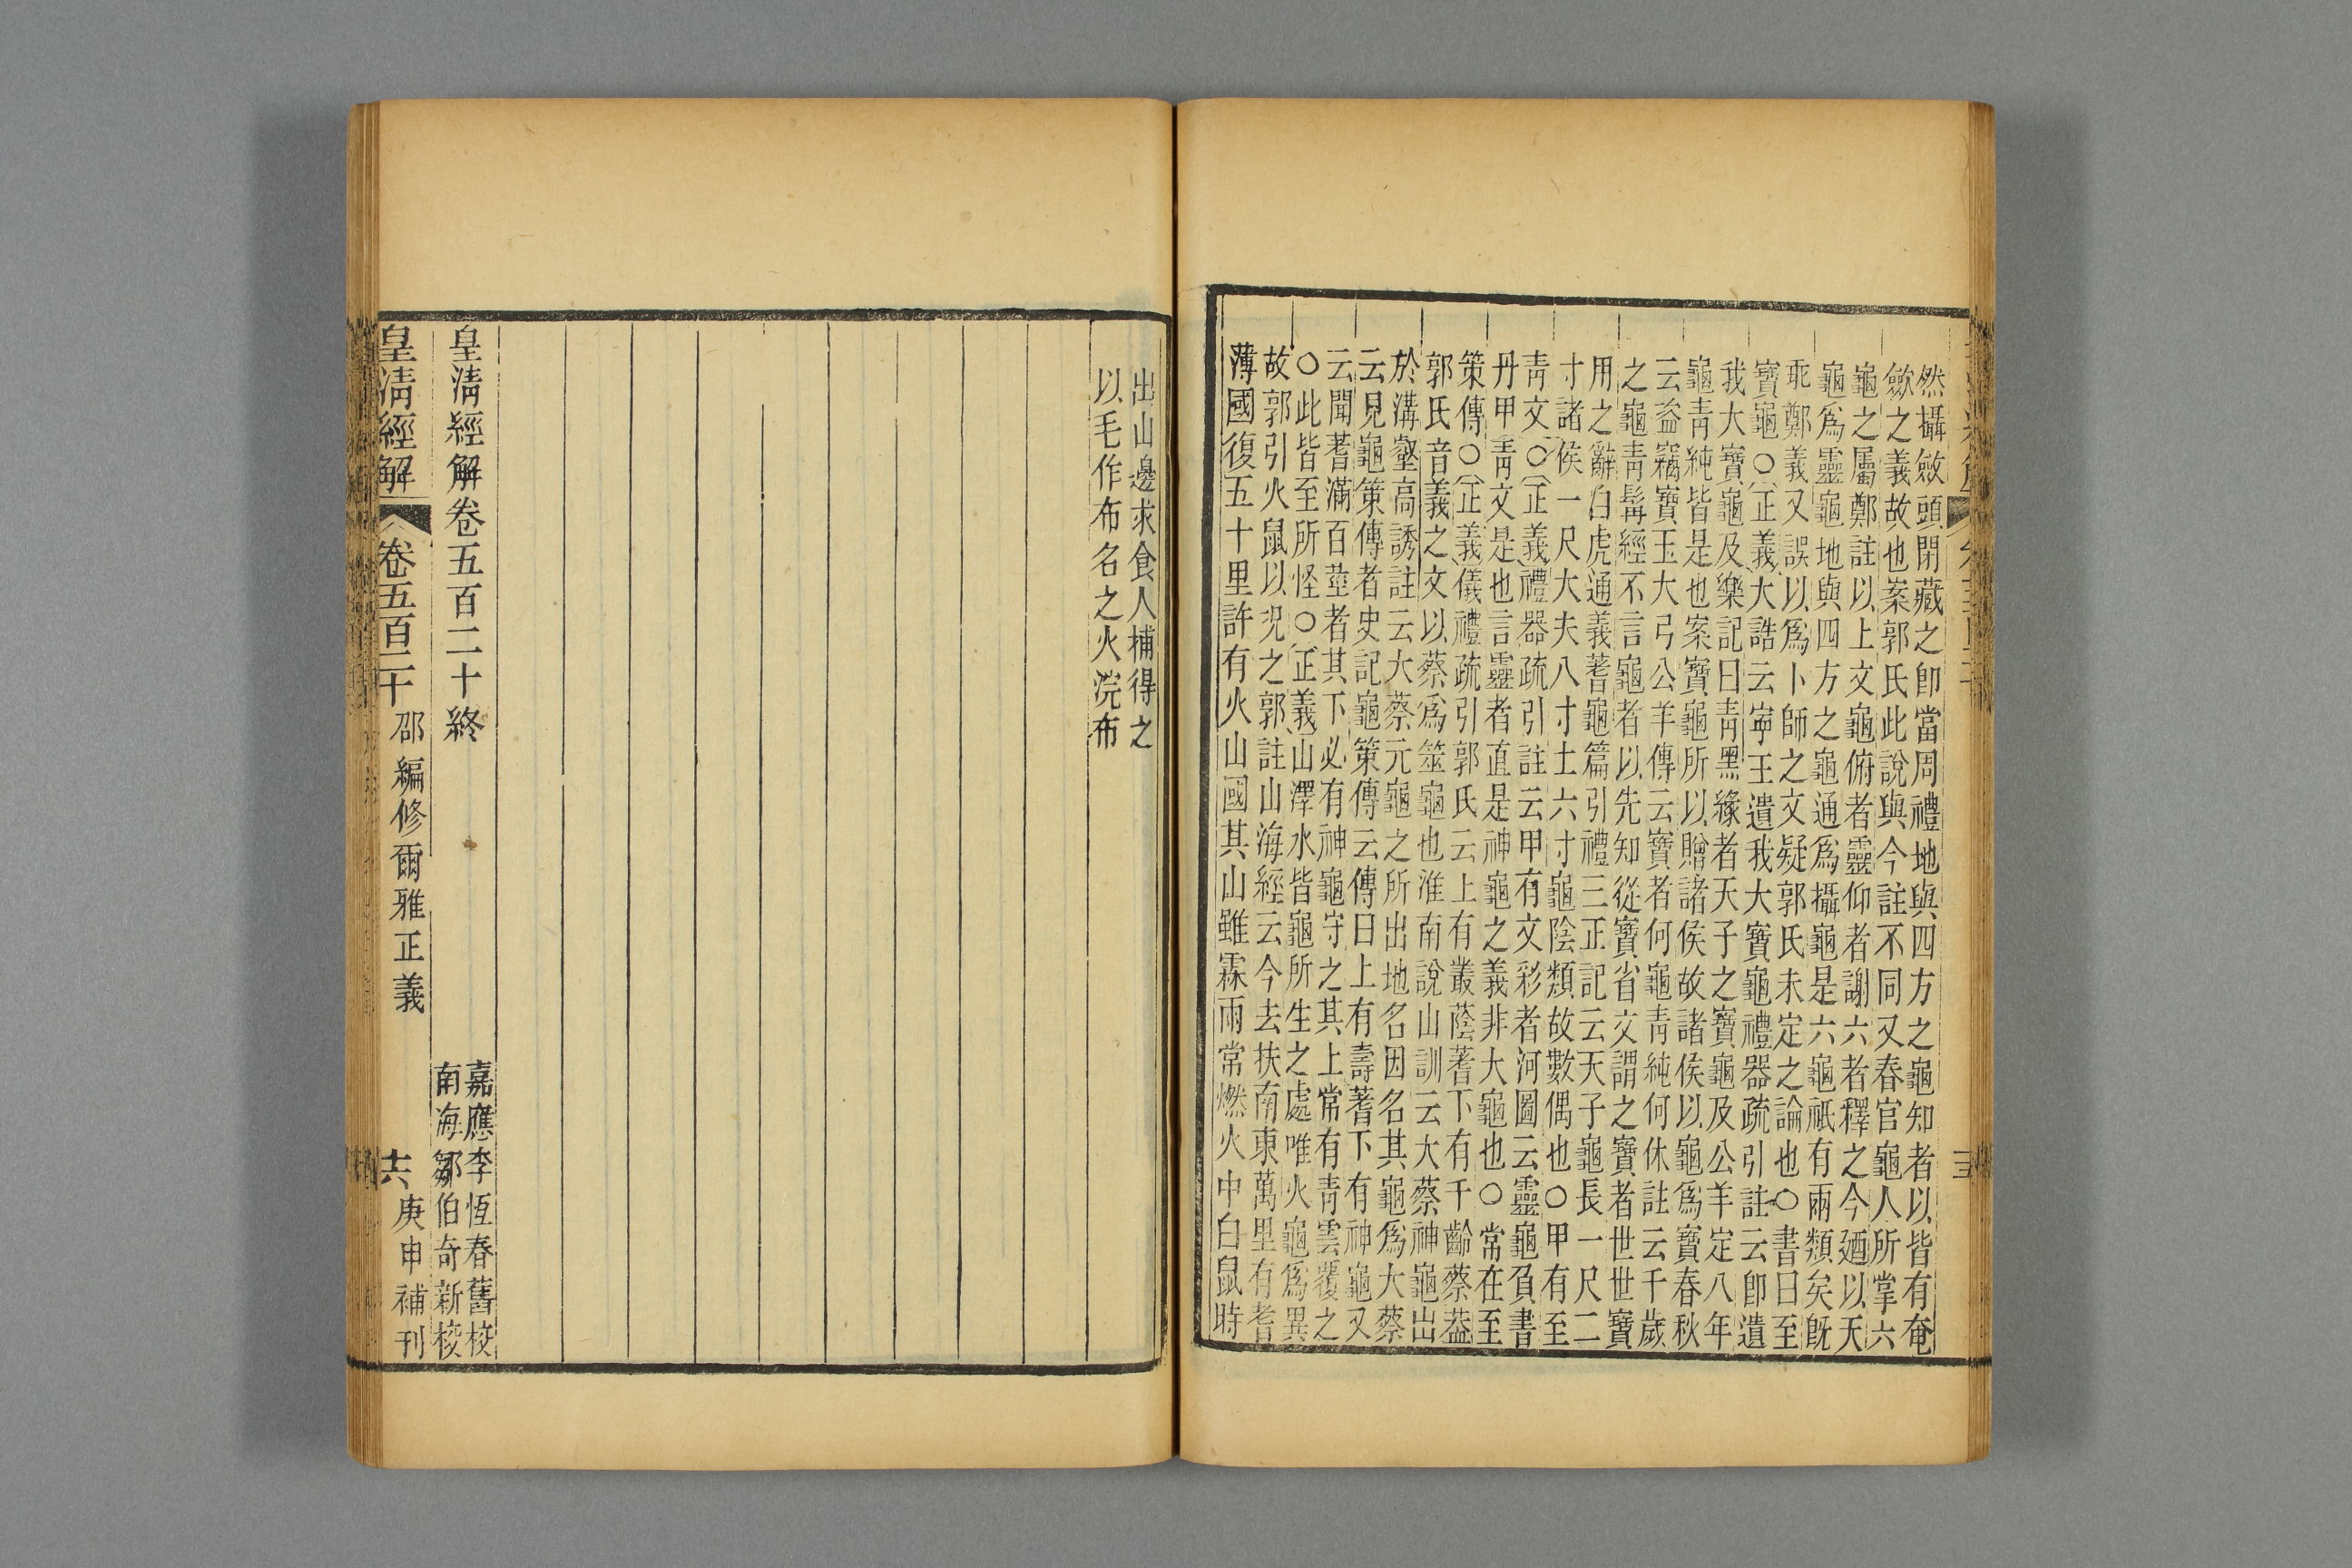 然攝斂頭閉藏之卽當周禮地與四方之龜知者以皆有奄
斂之義故也案郭氏此說與今註不同又春官龜人所掌六
龜之屬鄭註以上文龜俯者靈仰者謝六者釋之今廼以天
龜爲靈龜地與四方之龜通爲攝龜是六龜祇有兩類矣旣
乖鄭義又誤以爲卜師之文疑郭氏未定之論也○書曰至
寶龜○正義大誥云寧王遺我大寶龜禮器疏引註云卽遺
我大寶龜及樂記曰靑黑緣者天子之寶龜及公羊定八年
龜靑純皆是也案寶龜所以贈諸侯故諸侯以龜爲寶春秋
云盜竊寶玉大弓公羊傳云寶者何龜靑純何休註云千歲
之龜靑髯經不言龜者以先知從寶省文謂之寶者世世寶
用之辭白虎通義蓍龜篇引禮三正記云天子龜長一尺二
寸諸侯一尺大夫八寸士六寸龜陰類故數偶也○甲有至
靑文○正義禮器疏引註云甲有文彩者河圖云靈龜負書
丹甲靑文是也言靈者直是神龜之義非大龜也○常在至
策傳○正義儀禮疏引郭氏云上有叢蔭蓍下有千齡蔡葢
郭氏音義之文以蔡爲筮龜也淮南說山訓云大蔡神龜出
於溝壑高誘註云大蔡元龜之所出地名因名其龜爲大蔡
云見龜策傳者史記龜策傳云傳曰上有壽蓍下有神龜又
云聞蓍滿百莖者其下必有神龜守之其上常有靑雲覆之
○此皆至所怪○正義山澤水皆龜所生之處唯火龜爲異
故郭引火鼠以況之郭註山海經云今去扶南東萬里有耆
薄國復五十里許有火山國其山雖霖雨常燃火中白鼠時
出山邊求食人捕得之
以毛作布名之火浣布
皇淸經解卷五百二十終
嘉應李恆春舊校
南海鄒伯奇新校
皇淸經解
卷五百二十
邵編修爾雅正義
十六
庚申補刊